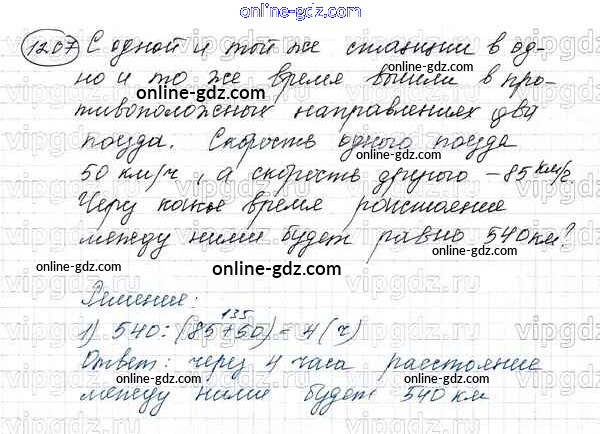 online-gdz.com
1207 С одной и той же станции в од-
но и то же время вышли в про-
тивоположных направлениях два
поезда. Скорость одного поезда
50 км/ч, а скорость другого – 85 км/ч.
Через какое время расстояние
между ними будет равно 540 км?
Решение:
135
1) 540 : (85+50) = 4 (ч)
Ответ: через 4 часа расстояние
между ними будет 540 км